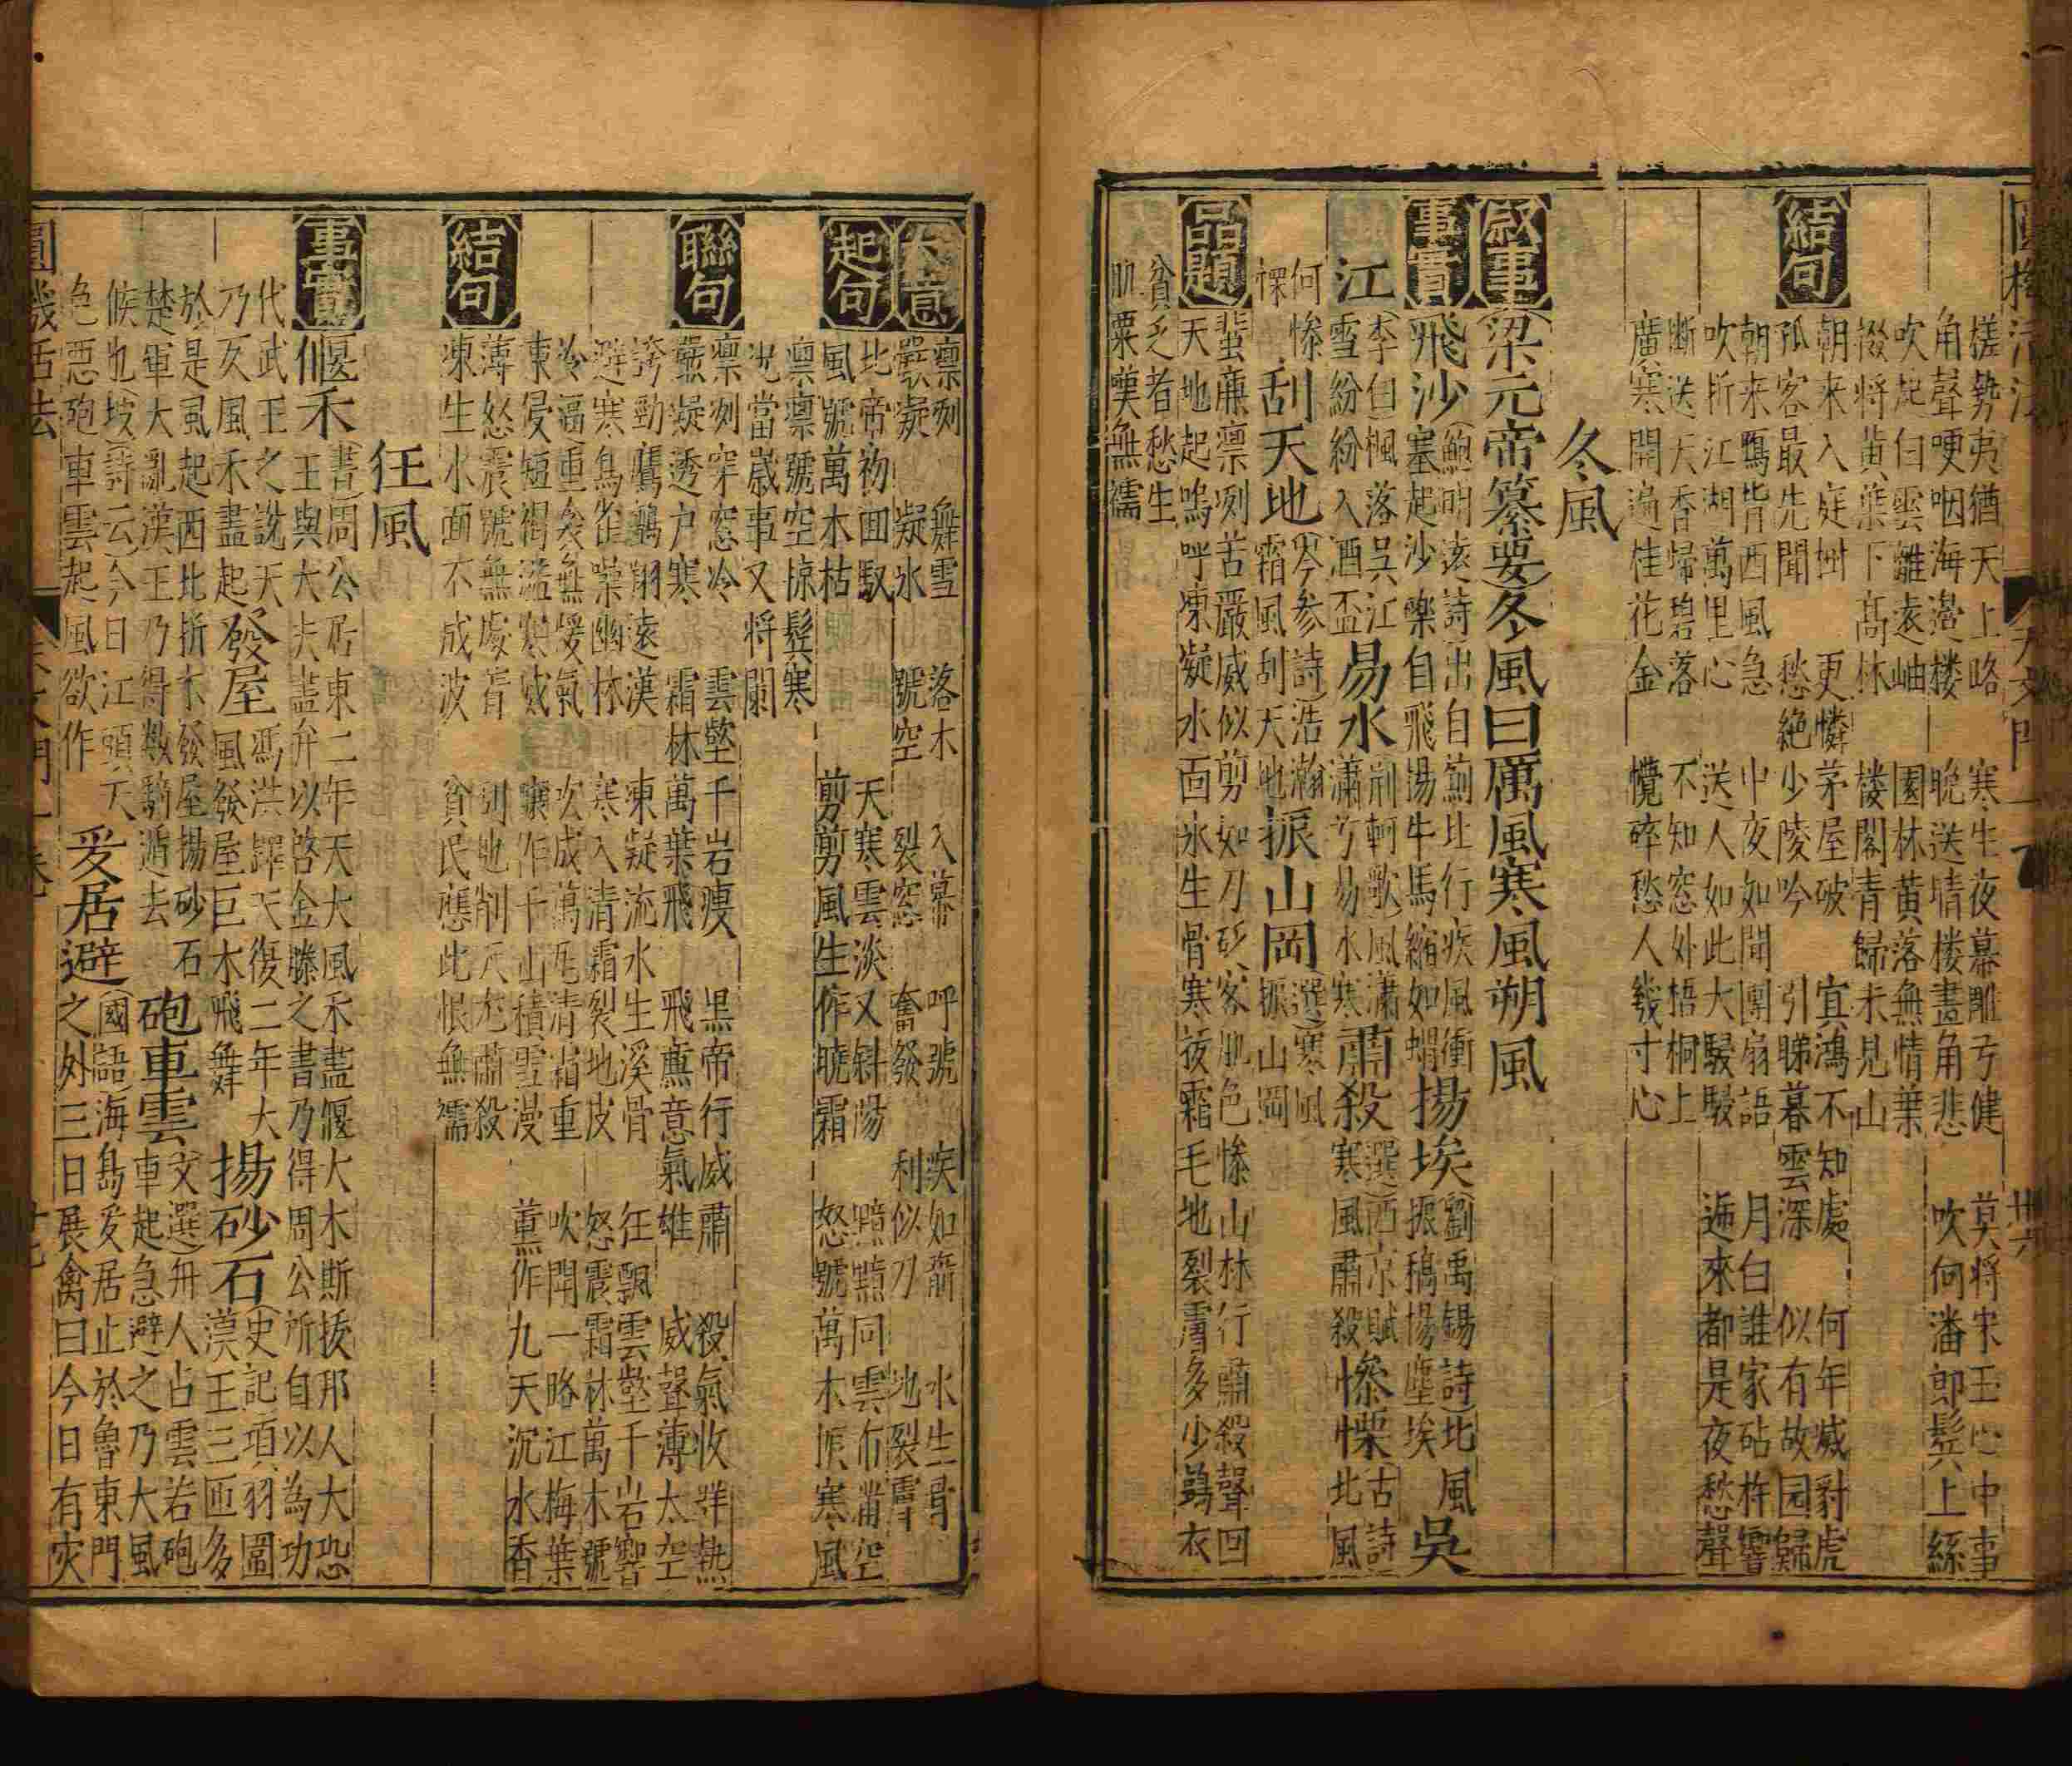 搓勢夷猶天上略　寒生夜幕雕弓健　莫將宋玉心中事
角聲哽咽海邊楼　晚送晴楼畫角悲　吹向潘郎鬂上絲
吹起白雲離遠岫　園林黄落無情葉
掇将黄葉下髙林　楼閣青歸未見山
結句
朝来入庭樹　更憐茅屋破　冝鴻不知處　何年威豺虎
孤客最先聞　愁絶少陵吟　引睇暮雲深　似有故园歸
朝来鴈背西風急　中夜如聞團扇語　月白誰家砧杵響
吹折江湖萬里心　送人如此大駸駸　逓來都是夜愁聲
断送天香歸碧落　不知窓外梧桐上
廣寒開遍桂花金　攪碎愁人幾寸心
冬風
叙事
梁元帝纂要冬風曰厲風寒風朔風
事實
飛沙鮑明遠詩出自薊北行疾風衝塞起沙礫自飛揚牛馬縮如蝟揚埃劉禹锡詩北風振槁揚塵埃吳
江李白楓落吳江雪紛紛入酒盃易水荊軻歌風瀟瀟兮易水寒肅殺選西京賦寒風肅殺慘慄古詩北風
何慘慄刮天地岑参詩浩瀚霜風刮天地振山岡選寒風振山岡
品題
蜚廉凛冽苦嚴威似剪如刀砭客肌色慘山林行肅殺聲回
天地起嗚呼凍凝水面氷生骨寒夜霜毛地裂膚多少鶉衣
貧乏者愁生
肌粟嘆無襦
大意
凛冽　舞雪　落木　入幕　呼號　疾如箭　水生骨
嚴凝　凝氷　號空　裂窓　奮發　利似刀　地裂膚
起句
北帝初囬馭　天寒雲淡又斜陽　黯黯同雲布滿空
風號萬木枯　剪剪風生作曉霜　怒號萬木振寒風
凛凛號空掠鬂寒
况當嵗事又将闌
聯句
凛冽穿窓冷　雲壑千岩瘦　黒帝行威肅　殺氣收群熱
嚴凝透户寒　霜林萬葉飛　飛廉意氣雄　威聲薄太空
誇勁鷹鸇翔遠漢　凍凝流水生溪骨　狂飄雲壑千岩響
避寒鳥雀噤幽林　寒入清霜裂地皮　怒震霜林萬木號
冷逼重衾無煖氣　吹成萬瓦清霜重　吹開一略江梅葉
東侵短褐滥寒威　釀作千山積雪漫　薰作九天沉水香
結句
薄怒震號無處肯　刮地削天充肅殺
凍生水面不成波　貧民應此恨無襦
狂風
事實
偃禾書周公居東二年天大風禾盡偃大木斯抜那人大恐
王與大夫盡弁以啓金縢之書乃得周公所自以為功
代武王之說天　馮洪鐸天復二年大　史記項羽圍
乃反風禾盡起發屋風發屋巨木飛舞揚砂石漢王三匝多
於是風起西北折木發屋揚砂石　文選舟人占雲若砲
楚軍大亂漢王乃得数騎遁去砲車雲車起急避之乃大風
候也坡詩云今日江頭天　國語海鳥爰居止於魯東門
色惡砲車雲起風欲作爰居避之外三日展禽曰今日有灾